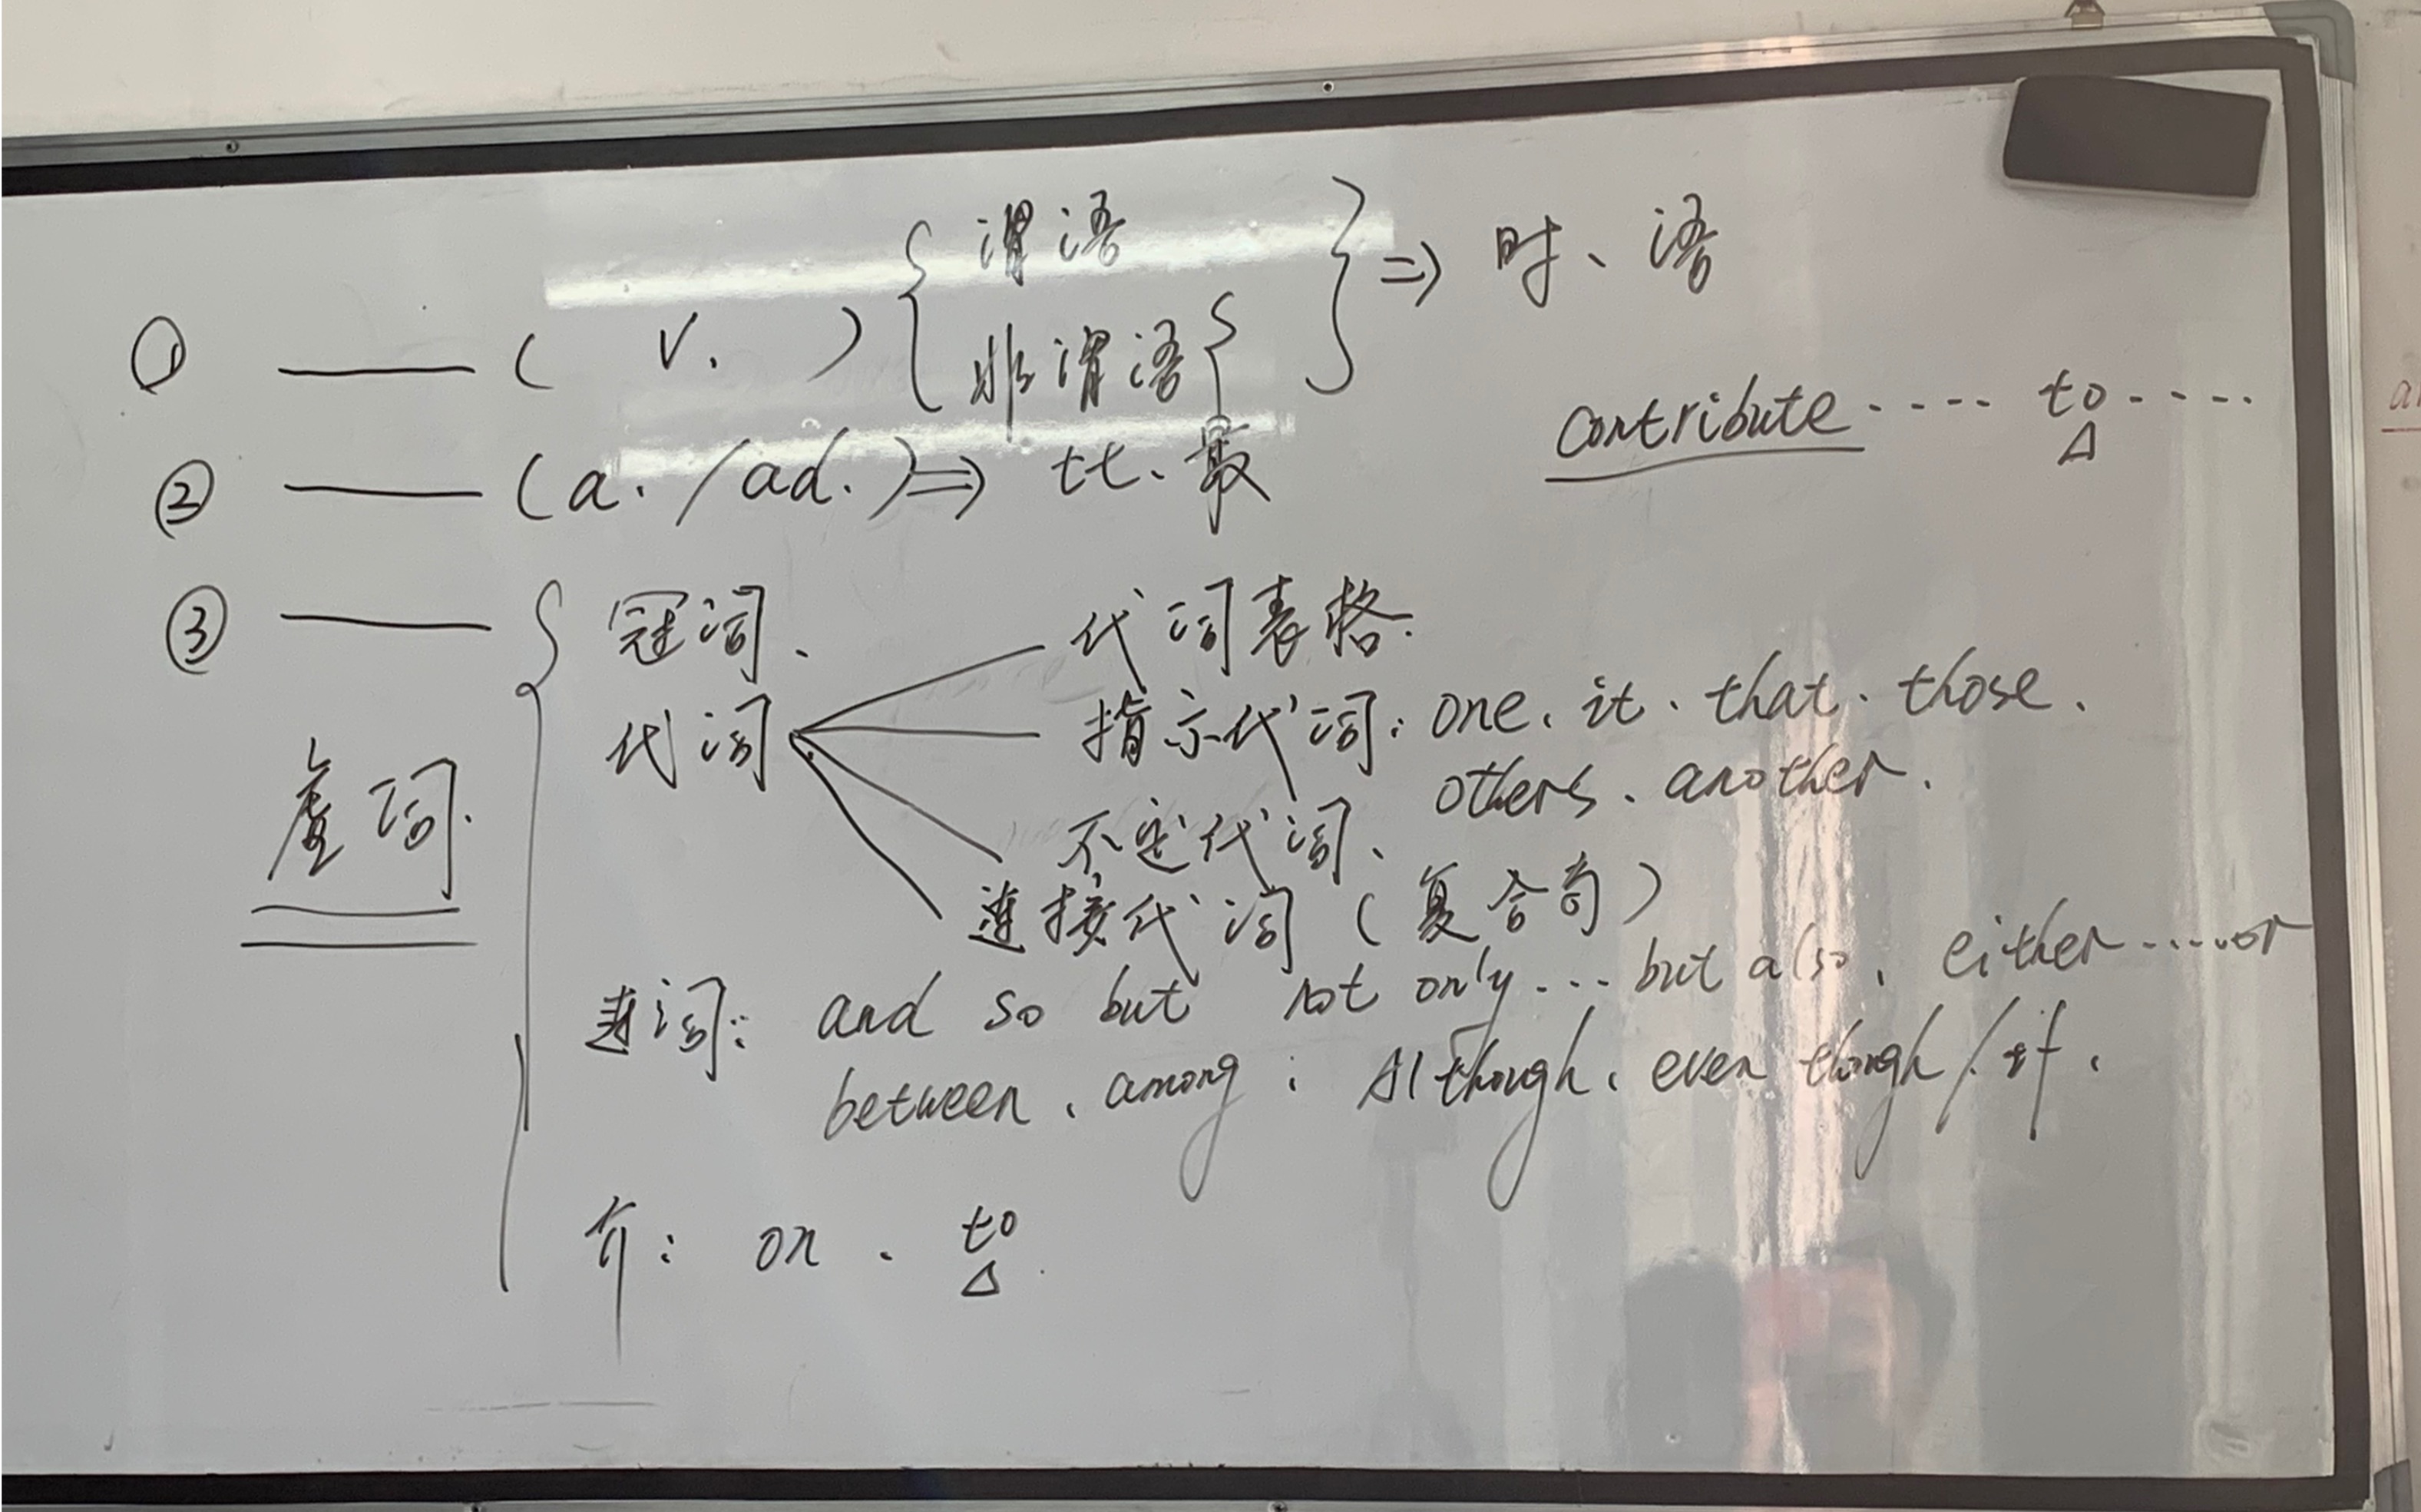 谓语
① ——— ( v. ) 非谓语 ⇒ 时、语
contribute ···· to ····
② ——— (a. / ad.) ⇒ 比、最
③ ——— 冠词、
代词
代词表格.
指示代词: one、it、that、those.
others、another.
不定代词、
连接代词 (复合句)
虚词.
连词: and so but not only ... but also, either ..... or
between、among; Although、even though / if、
介: on、to